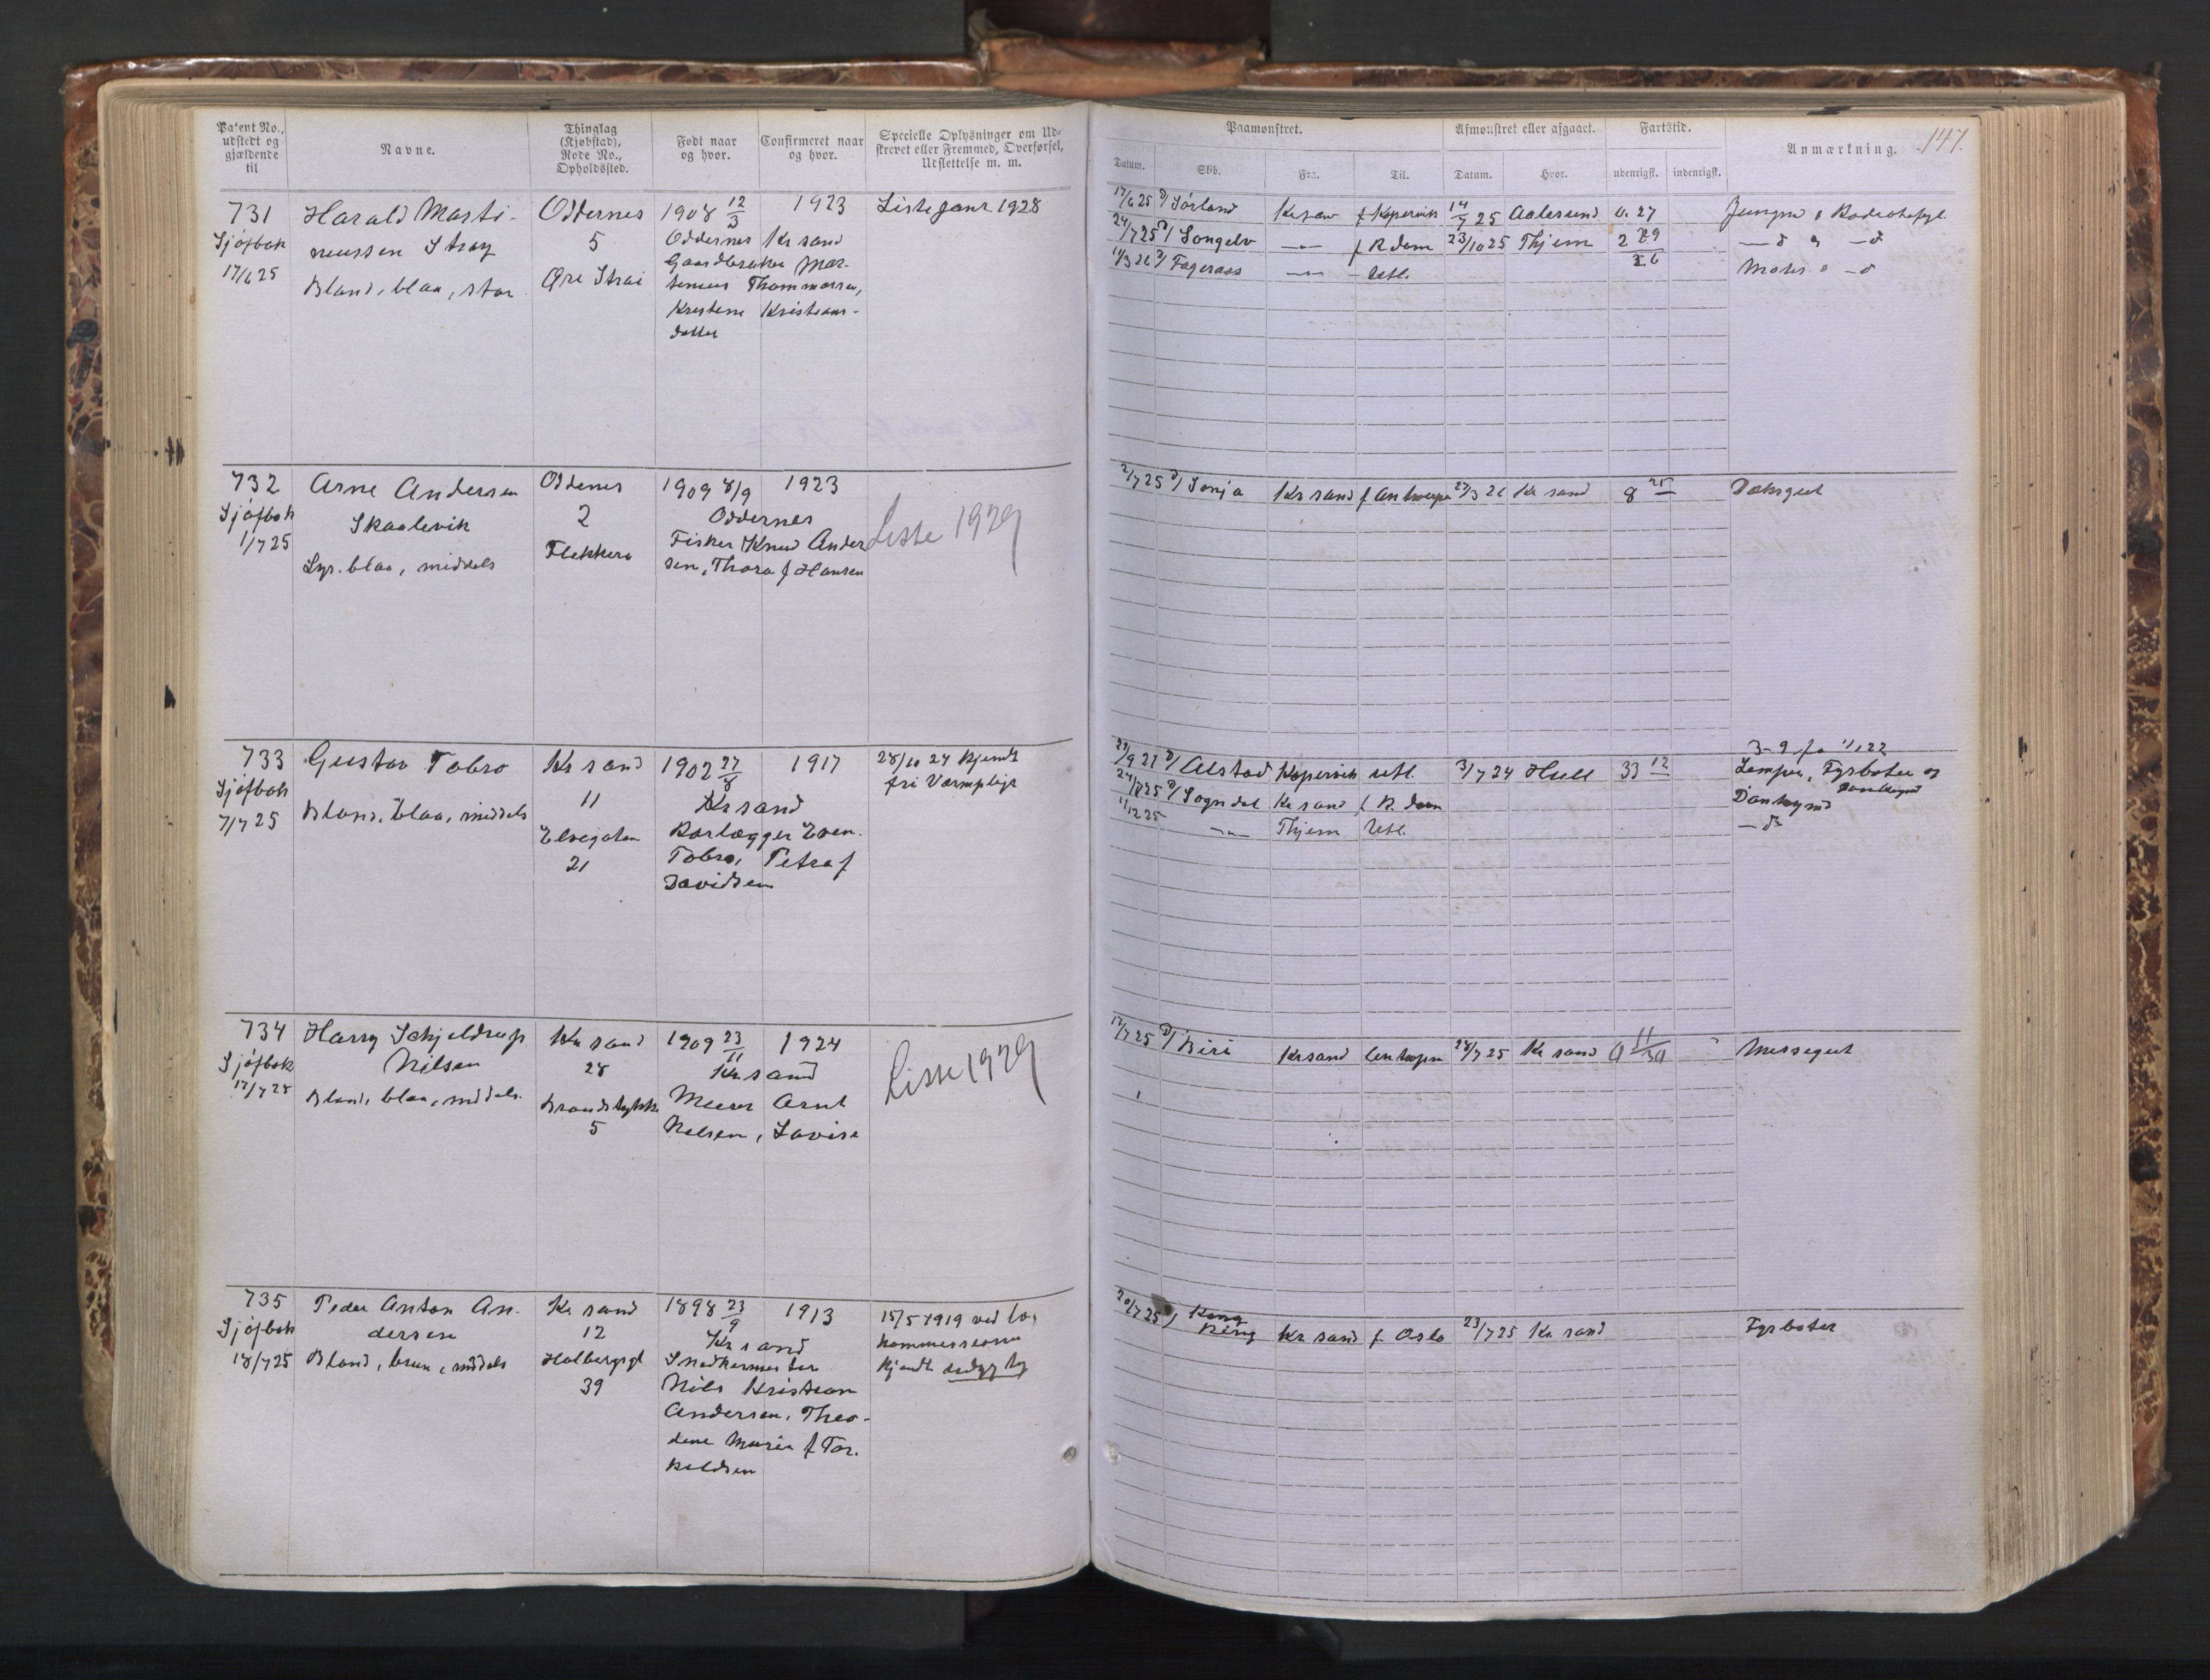 Patent No., udstedt og gjældende til
Navne.
Thinglag (Kjøbstad), Rode No., Opholdssted.
Født naar og hvor.
Confirmeret naar og hvor.
Specielle Oplysninger om Udskrevet eller Fremmed, Overførsel, Udslettelse m. m.
Paamønstret.
Afmønstret eller afgaaet.
Fartstid.
Anmærkning.
147.
Datum.
Skib.
Fra.
Til.
Datum.
Hvor.
udenrigsk.
indenrigsk.
731
Sjøfbok
17/6 25
Harald Marti-
neussen Stray
Blond, blaa, stor
Oddernes
5
Øre Strai
1908 12/3
1923
Oddernes Kr sand
Gaardbruker Mar-
tineus Thommassen,
Kristine Kristians-
datter
Liste Janr. 1928
17/6 25 D/ Sörland Krsaw f Kopervik 14/7 25 Aalesund 0. 27
24/7 25 D/ Songelv —"— f R dam 23/10 25 Thjem 2 29
D/ Fageraas —"— Utl. 26
—d
732
Sjøfbok
1/7 25
Arne Andersen
Skaalevik
Lys. blaa, middels
Oddernes
2
Flekkerø
1909 8/9
1923
Oddernes
Fisker Knud Ander
sen, Thora f Hansen
Liste 1929
2/7 25 D/ Sonja Kr sand f Antwerpn 27/3 26 Kr sand 8 25
Dæksgut
733
Sjøfbok
7/7 25
Gustav Tobro
Blond, blaa, middels
Kr sand
11
Elvegaten
21
1902 27/8
1917
Kr sand
Rørlægger Even
Tobro, Petra f
Davidsen
28/10 24 Kjendt
fri Værnepligt
D/ Alstad Kopervik utl. 3/7 24 Hull 33 12
3-9 fra 1/1 22
Lemper, Fyrbøter og
Donkeymd
24/8 25 D/ Sogndal Kr sand f. R. dam
Donkeymd
1/12 25 —"— Thjem Utl.
—d
734
Sjøfbok
17/7 25
Harry Schjeldrup
Nilsen
Blond, blaa, middels.
Kr sand
28
5
1909 23/11
1924
Kr sand
Murer Arnt
Nilsen, Lovise
Liste 1929
17/7 25 D/ Biri Kr sand Antwerpn 28/7 25 Kr sand 0 11/30
Messegut
735
Sjøfbok
18/7 25
Peder Anton An-
dersen
Blond, brun, middels
Kr sand
12
Holbergsgt
39
1898 23/9
1913
Kr sand
Snedkermester
Nils Kristian
Andersen, Theo-
dine Marie f Tor-
keldsen
15/5 1919 ved
kommissionen
kjendt
20/7 25 D/ Kong
Ring Kr sand f. Oslo 23/7 25 Kr sand
Fyrbøter